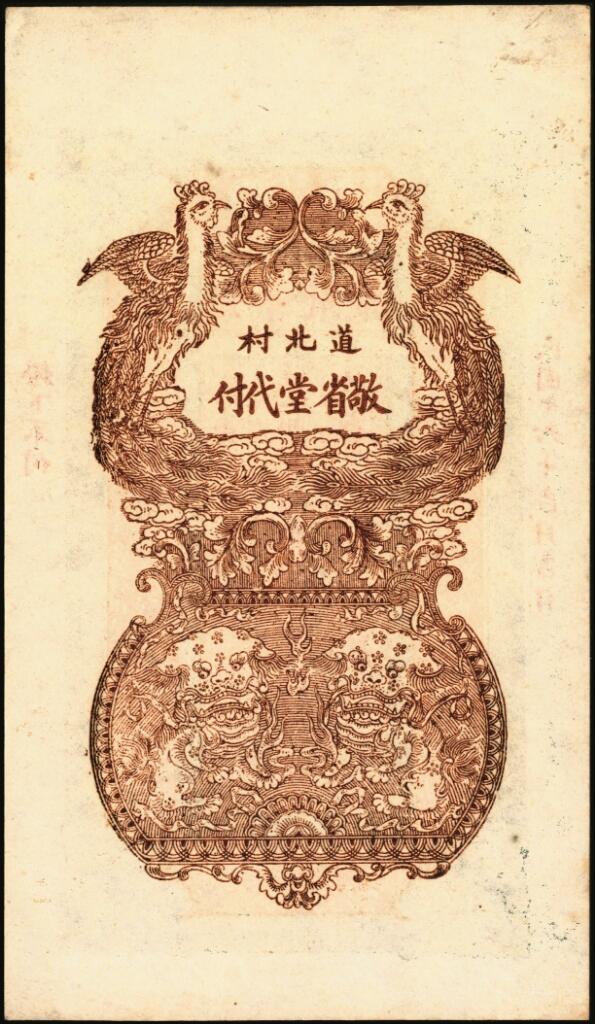 道北村
敬省堂代付